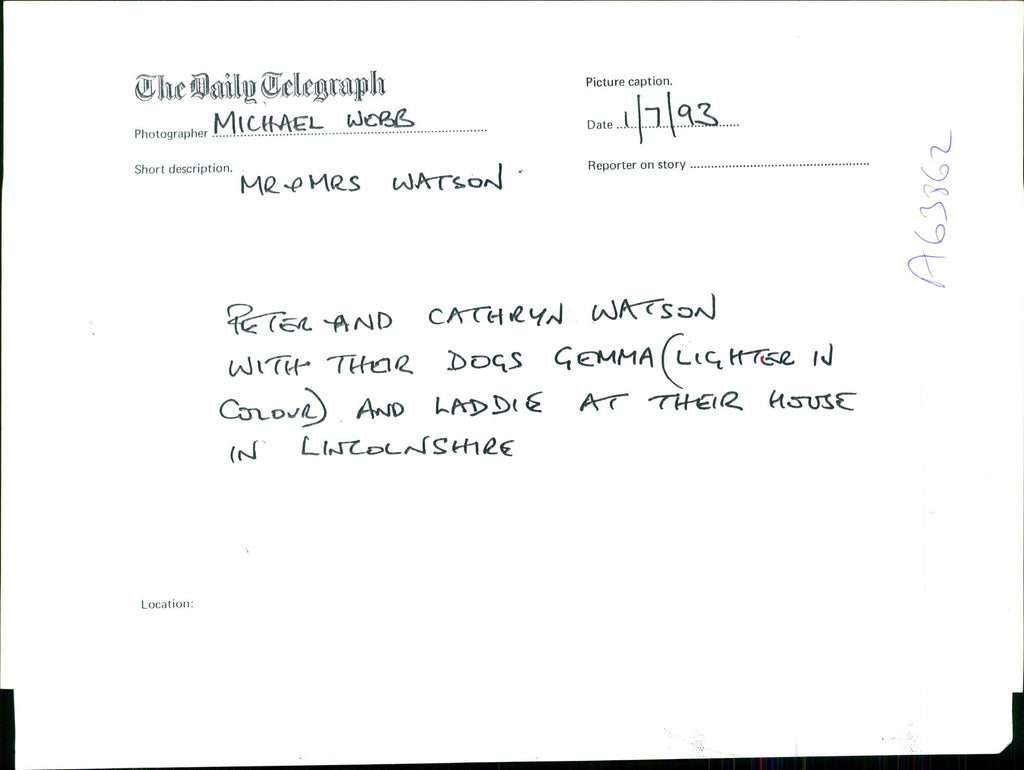 The Daily Telegraph
Picture caption.
Photographer MICHAEL WEBB
Date 1/7/93
Short description.
MR & MRS WATSON
Reporter on story
A63862
PETER AND CATHRYN WATSON
WITH THEIR DOGS GEMMA (LIGHTER IN
COLOUR) AND LADDIE AT THEIR HOUSE
IN LINCOLNSHIRE
Location: